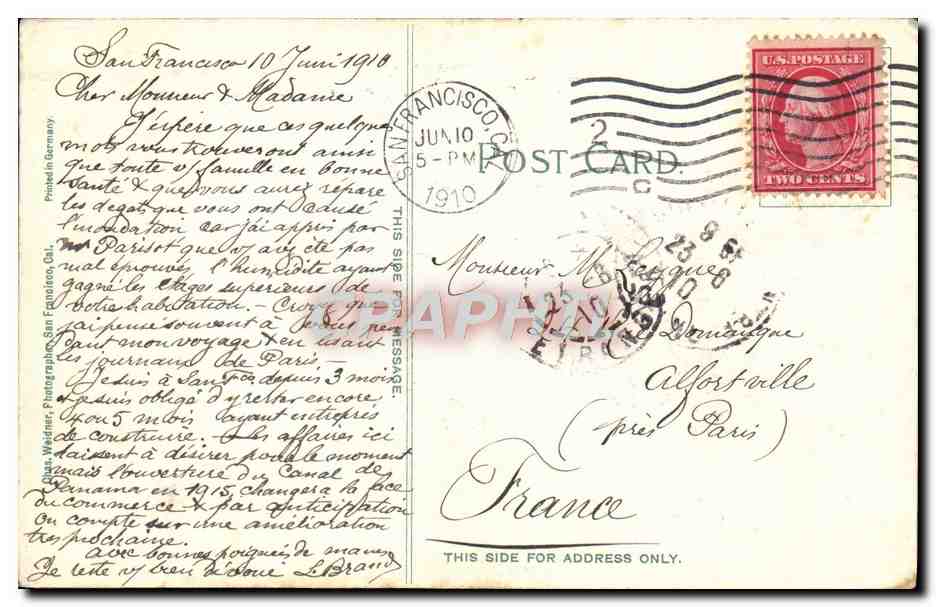 San Francisco 10 Juin 1910
Cher Monsieur & Madame
J'espère que ces quelques
mots vous trouveront ainsi
que toute v/ famille en bonne
santé & que vous aurez réparé
les degats que vous ont causé
l'inondation car j'ai appris par
Mr Parisot que v/ avez été pas
mal éprouvés, l'humidité ayant
gagné les étages superieurs de
votre habitation - Croyez que
j'ai pensé souvent à vous pen
dant mon voyage & en lisant
les journaux de Paris -
Je suis à San Fco depuis 3 mois
& je suis obligé d'y rester encore
4 ou 5 mois ayant entrepris
de construire. - Les affaires ici
laissent à désirer pour le moment
mais l'ouverture du Canal de
Panama en 1915, changera la face
du commerce & par anticipation
on compte sur une amélioration
tres prochaine.
avec bonnes poignées de mains
Je reste v/ bien dévoué L. Brand
Chas. Weidner, Photographer, San Francisco, Cal. Printed in Germany.
THIS SIDE FOR MESSAGE.
SAN FRANCISCO, CAL.
JUN 10
5-PM
1910
POST CARD.
2
C
U.S. POSTAGE
TWO CENTS
Monsieur
Domangue
Alfortville
(près Paris)
France
THIS SIDE FOR ADDRESS ONLY.
CPAPHIL